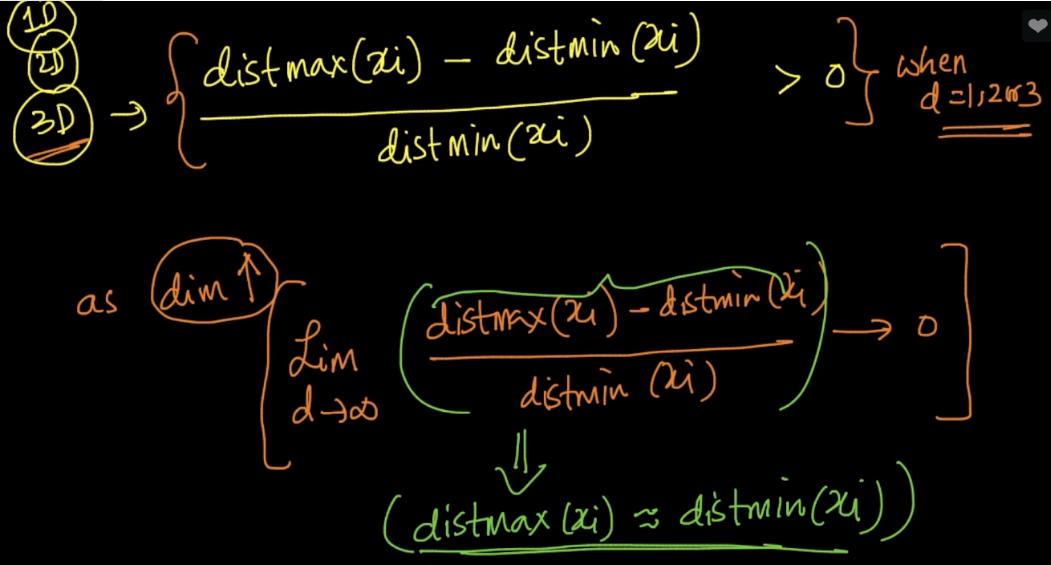 1D
2D
3D → { distmax(xi) − distmin(xi) / distmin(xi) > 0 } when d=1,2 or 3
as dim ↑ [ Lim d→∞ ( distmax(xi) − distmin(xi) / distmin(xi) ) → 0 ]
⇓
(distmax(xi) ≈ distmin(xi))